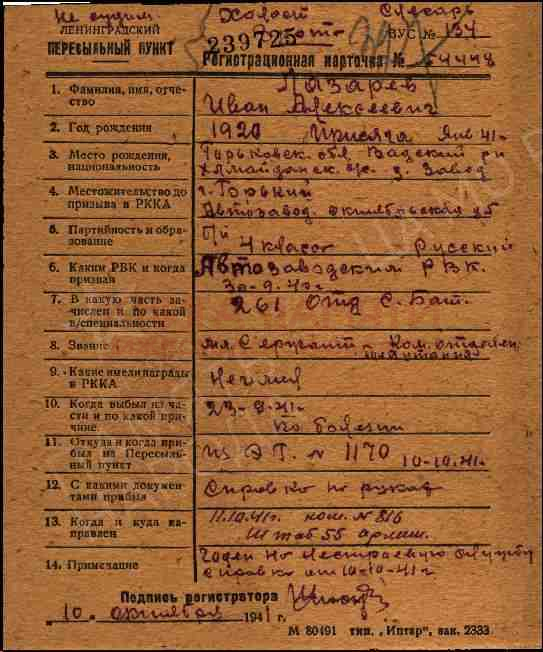 Не судим. Холост Слесарь
ЛЕНИНГРАДСКИЙ
ПЕРЕСЫЛЬНЫЙ ПУНКТ
ВУС № 134
239725
Регистрационная карточка № 54448
1. Фамилия, имя, отче-
ство
Лазарев
Иван Алексеевич
2. Год рождения
1920 Присяга Янв 41г
3. Место рождения,
национальность
Горьковск. обл Вадский р-н
д. Завод
4. Местожительство до
призыва в РККА
г. Горький
Автозавод. октябрьская
5. Партийность и обра-
зование
4 класса Русский
6. Каким РВК и когда
призван
Автозаводский РВК.
30-9-40г.
7. В какую часть за-
числен и по какой
в/специальности
261 Отд С. Бат.
8. Звание
мл Сержант Ком. отделен.
9. Какие имели награды
в РККА
Не имел
10. Когда выбыл из ча-
сти и по какой при-
чине
23-9-41г.
по болезни
11. Откуда и когда при-
был на Пересыль-
ный пункт
из ЭГ. № 1170
10-10.41г.
12. С какими докумен-
тами прибыл
Справка на руках
13. Когда и куда на-
правлен
11.10.41г. ком. № 816
Штаб 55 армии.
14. Примечание
Годен к нестроевую службу
справка от 10-10-41г
Подпись регистратора
„10„ октября 1941 г.
М 80491 тип. „Интар", зак. 2333